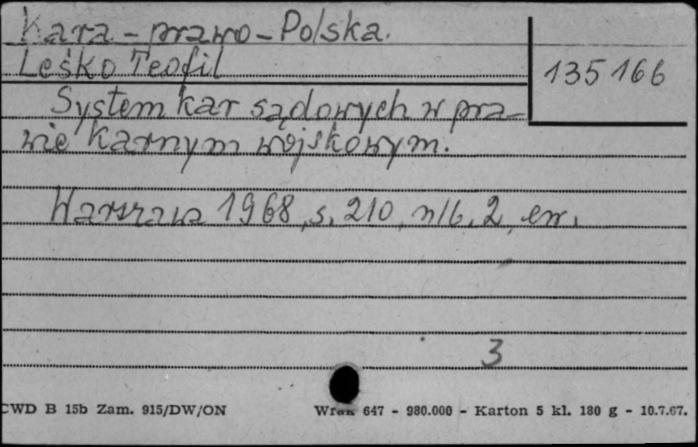 Kara - prawo - Polska.
Leśko Teofil
135166
System kar sądowych w pra-
wie karnym wojskowym.
Warszawa 1968, s. 210, nlb. 2, err.
3
CWD B 15b Zam. 915/DW/ON
647 - 980.000 - Karton 5 kl. 180 g - 10.7.67.